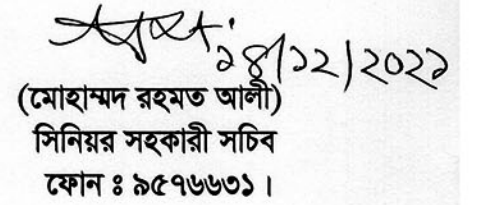 ১৪/১২/২০২১
(মোহাম্মদ রহমত আলী)
সিনিয়র সহকারী সচিব
ফোন ঃ ৯৫৭৬৬৩১ ।